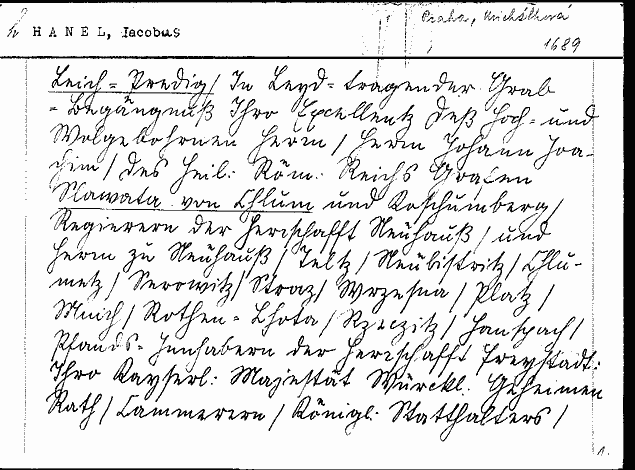 h HANEL, Iacobus
Praha,
1689
Leich = Predig / In Leyd = tragender Grab
= Begängnuß Ihro Excellentz Deß Hoch = und
Wolgebohrnen Herrn / Herrn Johann Joa-
chim / Des Heil: Röm: Reichs Grafen
Slawata von Chlum und Koschumberg /
Regierern der Herrschafft Neuhauß / und
Herrn zu Neuhauß / Teltz / Neubistritz / Chlu-
metz / Serowitz / Straz / Wrzesna / Platz /
Mnich / Rothen = Lhota / Rzeczitz / Hanspach /
Pfands = Innhabern der Herrschafft Freystadt:
Ihro Kayserl: Majestät Würckl: Geheimen
Rath / Cammerern / Königl: Statthalters /
1.